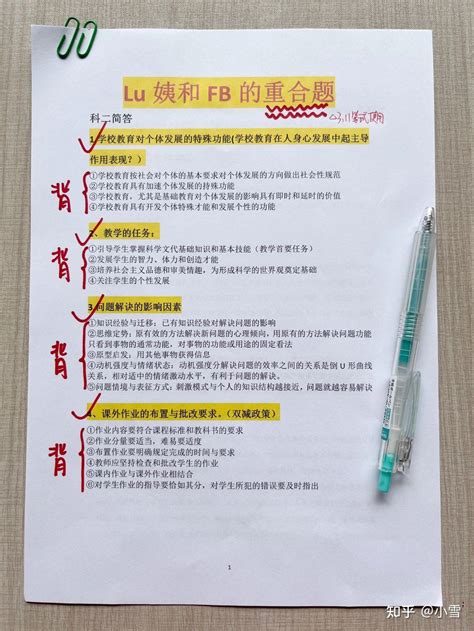 Lu 姨和 FB 的重合题
科二简答
1.学校教育对个体发展的特殊功能(学校教育在人身心发展中起主导
作用表现？)
背
①学校教育按社会对个体的基本要求对个体发展的方向做出社会性规范
②学校教育具有加速个体发展的特殊功能
③学校教育、尤其是基础教育对个体发展的影响具有即时和延时的价值
④学校教育具有开发个体特殊才能和发展个性的功能
2、教学的任务：
背
①引导学生掌握科学文代基础知识和基本技能（教学首要任务）
②发展学生的智力、体力和创造才能
③培养社会主义品德和审美情趣，为形成科学的世界观奠定基础
④关注学生的个性发展
3.问题解诀的影响因素
背
①知识经验与迁移：已有知识经验对解诀问题的影响
②思维定势：原有效的方法解诀新问题的心理倾向，用原有的方法解诀问题功能
只看到事物的通常功能，对事物的功能或用途的固定看法
③原型启发，用其他事物获得信息
④动机强度与情绪状态：动机强度分解诀问题的效率之间的关系是倒 U 形曲线
关系，相对适中的情绪激动水平，有利于问题的解诀。
⑤问题情境与表征方式：刺激模式与个人的知识结构越接近，问题就越容易解诀
4、课外作业的布置与批改要求。（双减政策）
背
①作业内容要符合课程标准和教科书的要求
②作业分量要适当，难易要适度
③布置作业要明确规定完成的时间与要求
④教师应坚持检查和批改学生的作业
⑤课内作业与课外作业相结合
⑥对学生作业的指导要恰如其分，对学生所犯的错误要及时指出
1
知乎 @小雪